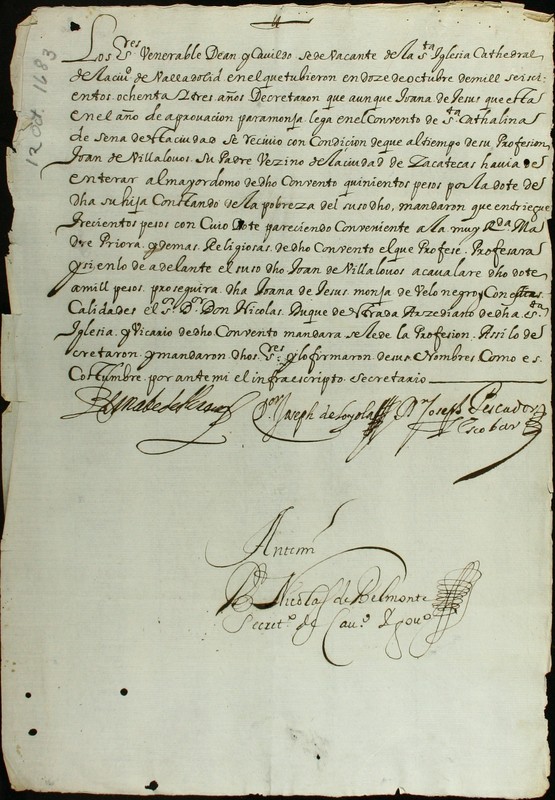 12 Oct. 1683
Los S.res Venerable Dean y Cavildo Sede Vacante de la S.ta Iglesia Cathedral
de la ciu.d de Valladolid en el que tubieron en doze de octubre de mill seisci
entos. ochenta y tres años Decretaron que aunque Joana de Jesus que esta
en el año de aprovacion para monja lega en el Convento de S.ta Cathalina
de Sena de esta ciudad Se recivio con Condicion de que al tiempo de su Profesion
Joan de Villalovos. Su Padre Vezino de la ciudad de Zacatecas havia de
enterar al mayordomo de dho Convento quinientos pesos por la dote de
dha su hija Constando de la pobreza del suso dho, mandaron que entriegue
trecientos pesos con Cuio Dote pareciendo Conveniente a la muy R.da Ma
dre Priora. y demas. Religiosas de dho Convento el que Profese. Profesara
y si en lo de adelante el suso dho Joan de Villalovos acavalare dho dote
a mill pesos. proseguira. dha Joana de Jesus. monja de Velo negro y Con estas
Calidades el S.r D.or Don Nicolas. Duque de Estrada Arzediano de dha. S.ta
Iglesia. y Vicario de dho Convento mandara se le de la Profesion. Assi lo de
cretaron, y mandaron dhos. S.res y lo firmaron de sus Nombres Como e s.
Costumbre. por ante mi el infraescripto. Secretario
D.or Joseph de Loyola D.n Joseph Pescador
Escobar
Antemi
B.r Nicolas de Belmonte
Secret.o de Cav.o y gov.o